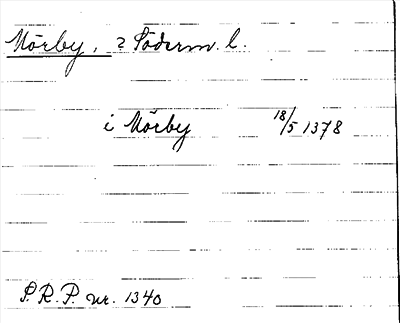 Mörby, ? Söderm. l.
i Mörby 18/5 1378
S.R.P. nr. 1340